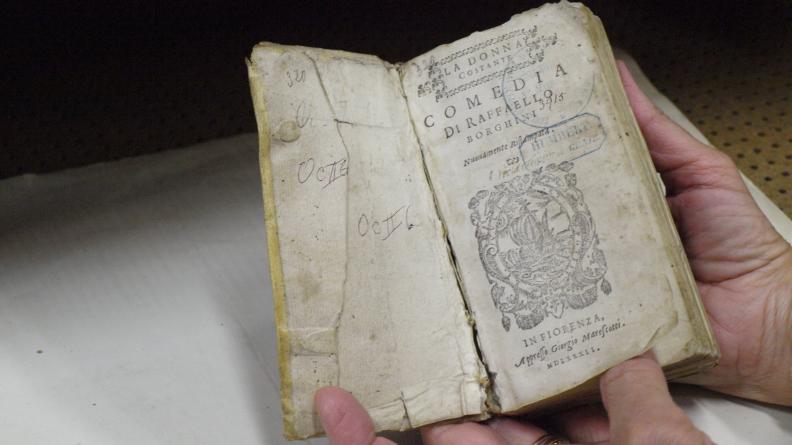 320
OcII6
OcII6
LA DONNA
COSTANTE
COMEDIA
DI RAFFAELLO
BORGHINI
3515
Nuouamente Ristampata.
IN FIORENZA,
Appresso Giorgio Marescotti.
MDLXXXII.